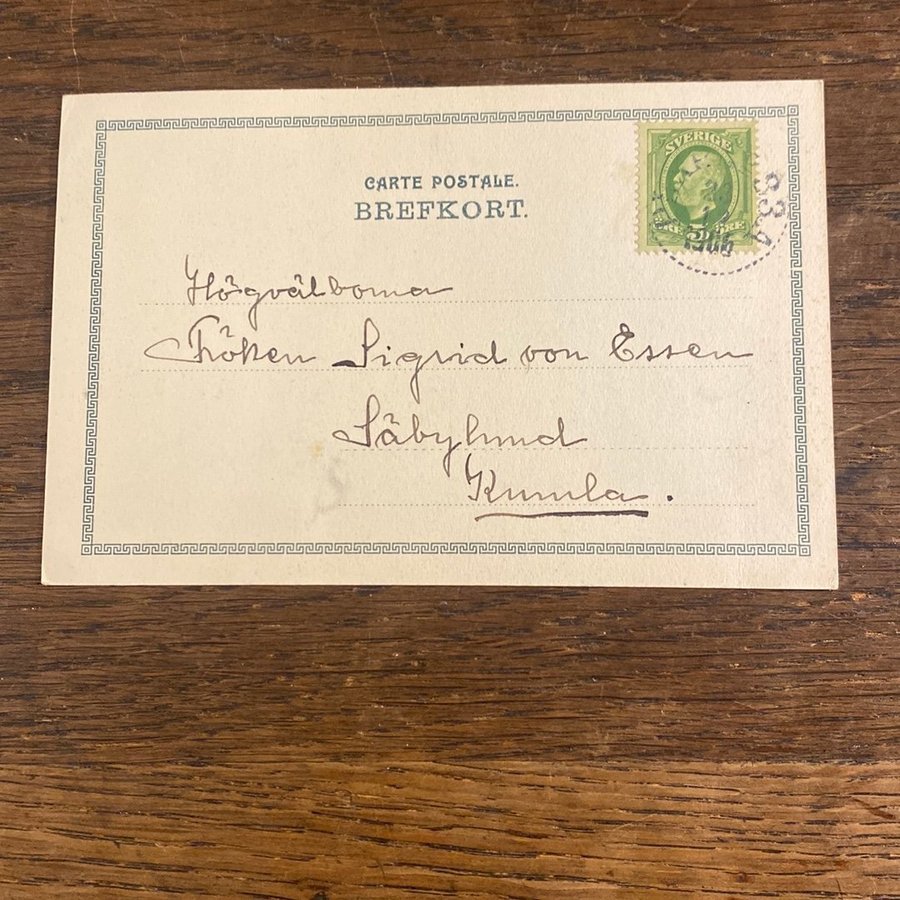 CARTE POSTALE.
BREFKORT.
SVERIGE
5
ÖRE
1906
Högvälborna
Fröken Sigrid von Essen
Säbylund
Kumla.